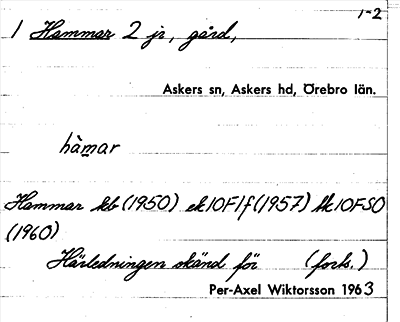 1-2
1 Hammar 2 jr, gård,
Askers sn, Askers hd, Örebro län.
hàmar
Hammar kb (1950) ek10F1f (1957) tk10FSO
(1960)
Härledningen okänd för (forts.)
Per-Axel Wiktorsson 1963